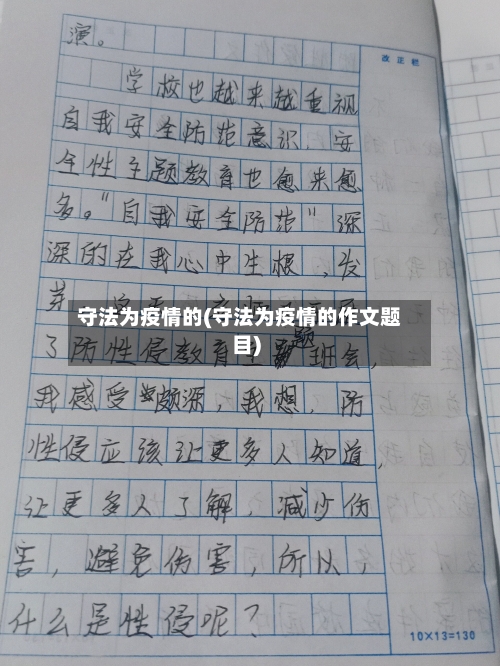 演。
改正栏
学校也越来越重视
自我安全防范意识，安
全性主题教育也愈来愈
多。"自我安全防范"深
深的在我心中生根，发
芽
守法为疫情的(守法为疫情的作文题
目)
了防性侵教育主题班会，
我感受颇深，我想，防
性侵应该让更多人知道，
让更多人了解，减少伤
害，避免伤害，所以，
什么是性侵呢？
10×13=130